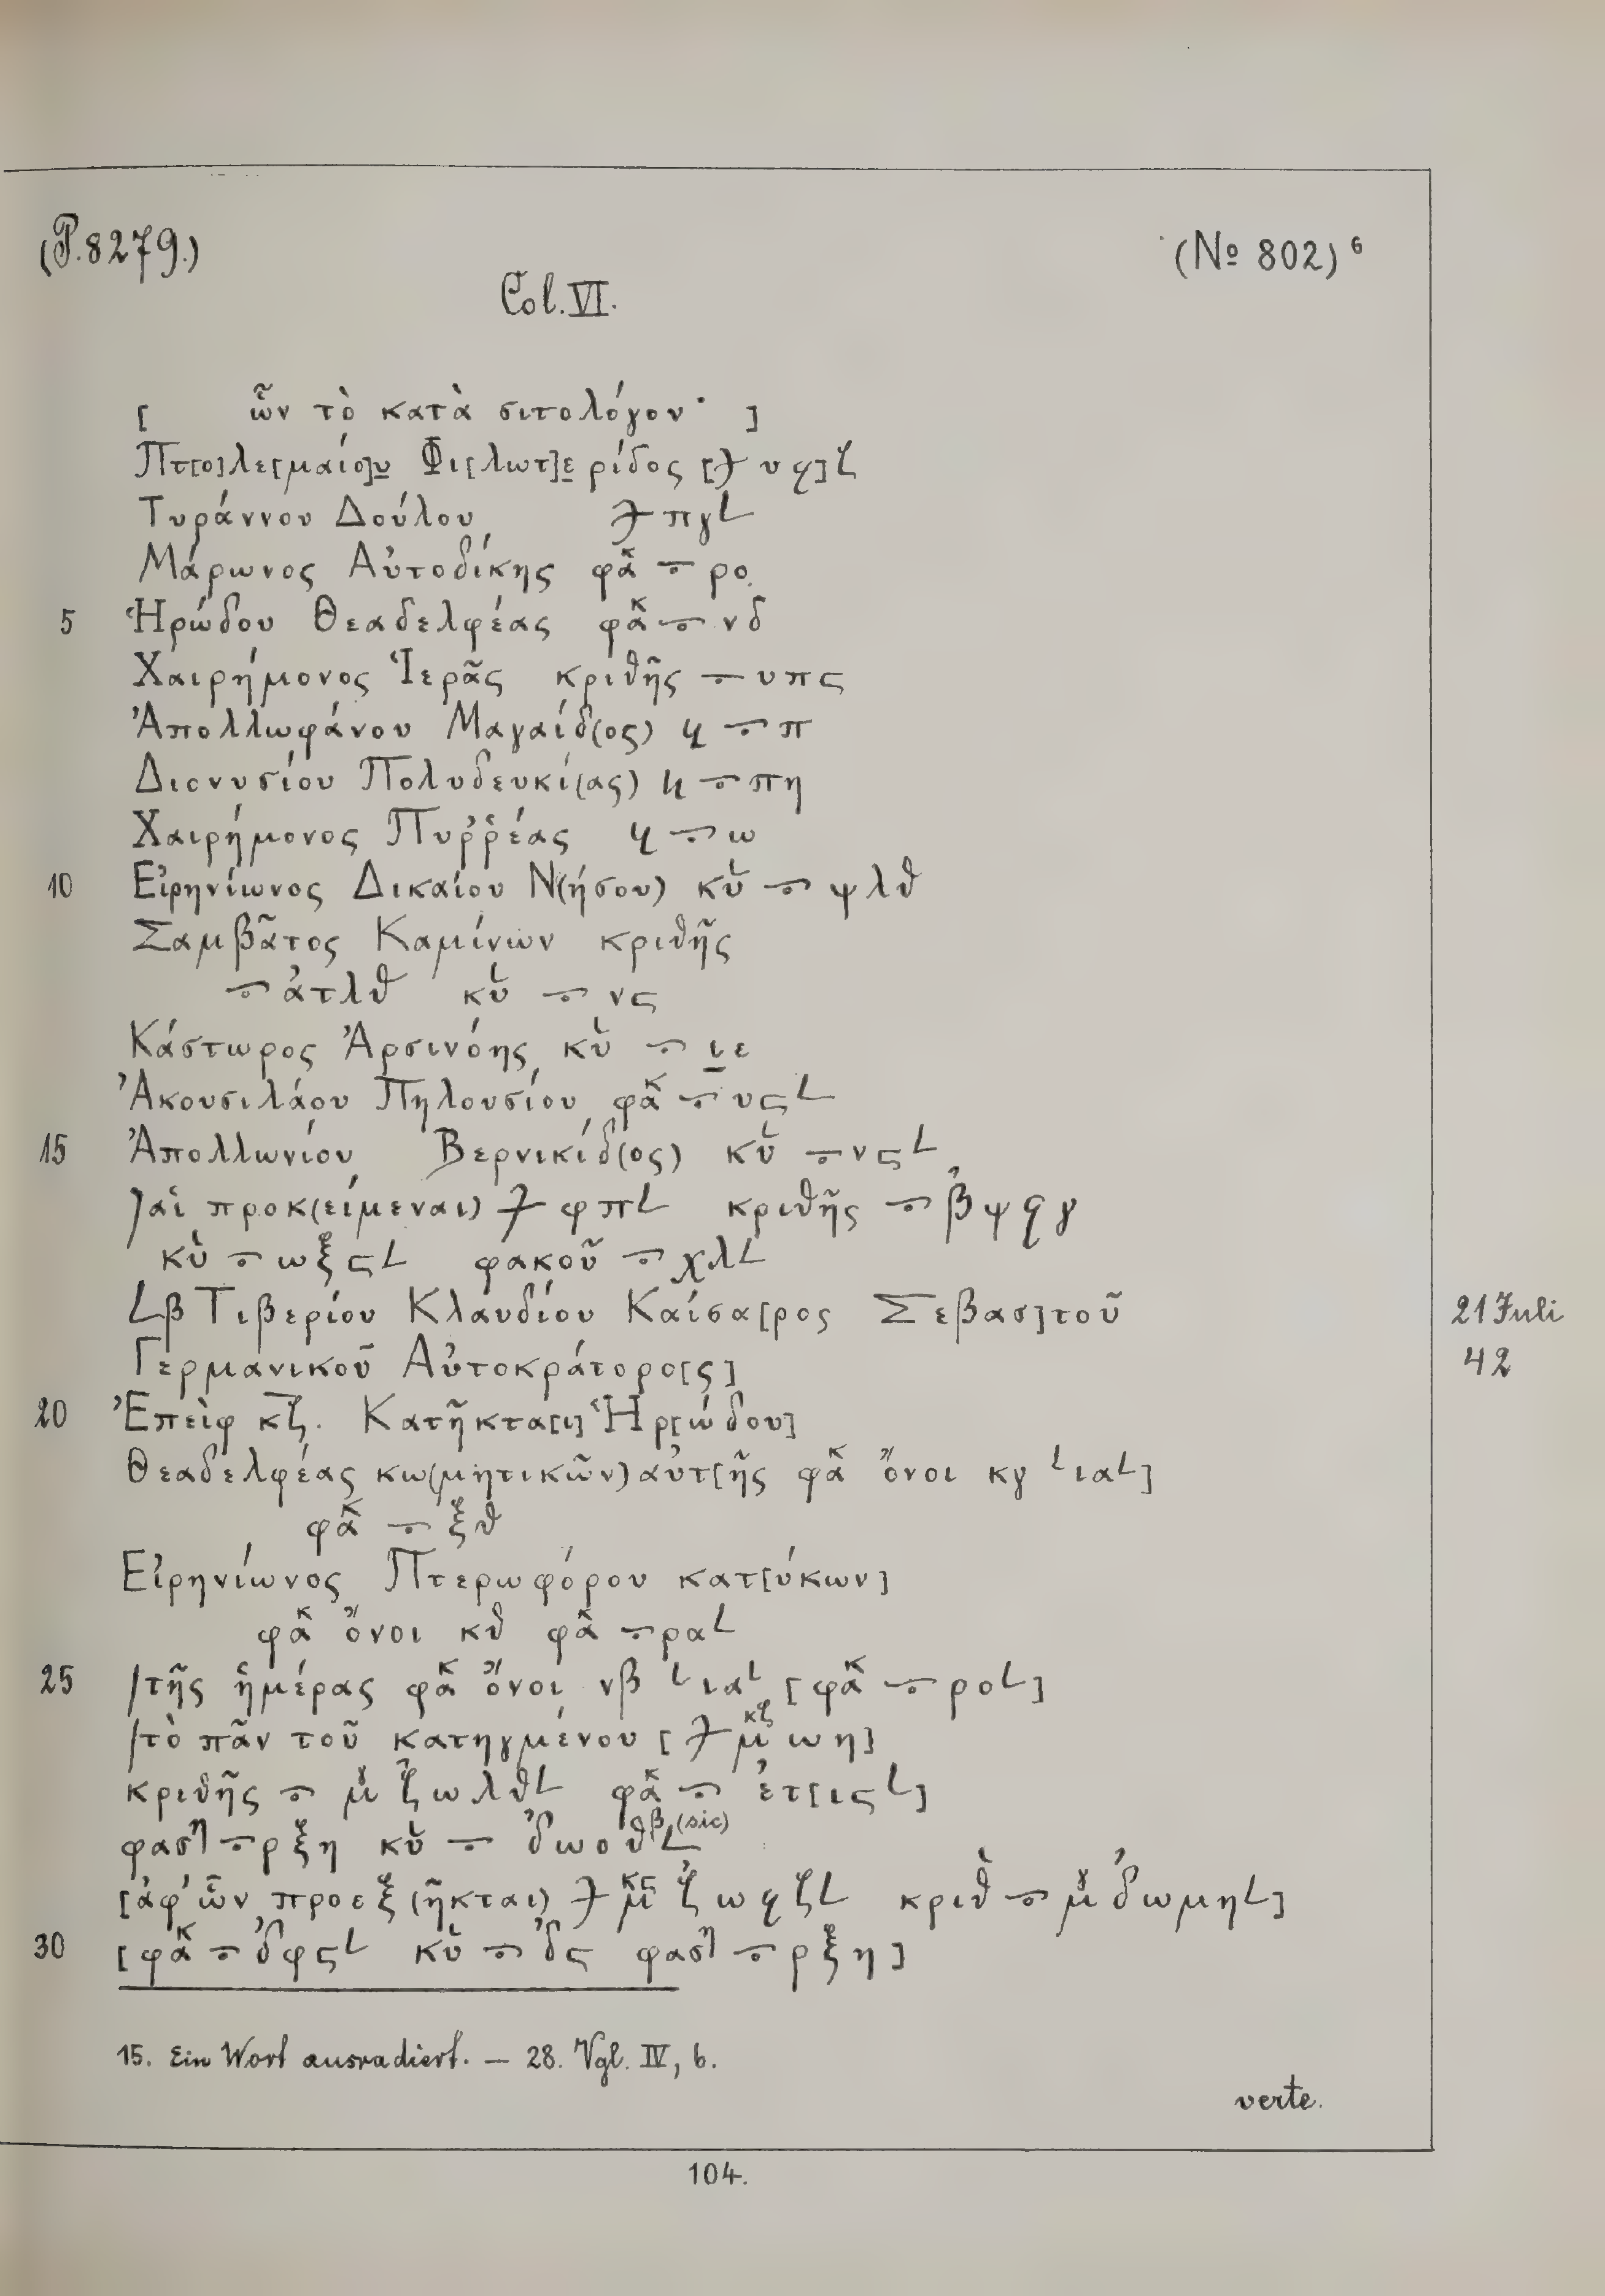 (P. 8279.)
(No 802) 6
Col. VI.
[ ὧν τὸ κατὰ σιτολόγον· ]
Πτ[ο]λε[μαίο]υ̣ Φι[λωτ]ε̣ρίδος [𐅼 υϙ]ζ
Τυράννου Δούλου 𐅼 πγL
Μάρωνος Αὐτοδίκης φακ ⨪ ρο
5 Ἡρώδου Θεαδελφέας φακ ⨪ νδ
Χαιρήμονος Ἱερᾶς κριθῆς ⨪ υπϛ
Ἀπολλωφάνου Μαγαίδ(ος) ϥ ⨪ π
Διονυσίου Πολυδευκί(ας) ϥ ⨪ πη
Χαιρήμονος Πυρρέας ϥ ⨪ ω
10 Εἰρηνίωνος Δικαίου Ν(ήσου) κὺ ⨪ ψλθ
Σαμβᾶτος Καμίνων κριθῆς
⨪ ἀτλθ κὺ ⨪ νϛ
Κάστωρος Ἀρσινόης κὺ ⨪ ι̣ε
Ἀκουσιλάου Πηλουσίου φακ ⨪ υϛL
15 Ἀπολλωνίου Βερνικίδ(ος) κὺ ⨪ νϛL
/αἱ προκ(είμεναι) 𐅼 φπL κριθῆς ⨪ βψϙγ
κὺ ⨪ ωξϛL φακοῦ ⨪ χλL
Lβ Τιβερίου Κλαυδίου Καίσα[ρος Σεβασ]τοῦ
21 Juli
Γερμανικοῦ Αὐτοκράτορο[ς]
42
20 Ἐπεὶφ κζ. Κατῆκτα[ι] Ἡρ[ώδου]
Θεαδελφέας κω(μητικῶν) αὐτ[ῆς φακ ὄνοι κγ LιαL]
φακ ⨪ ξθ
Εἰρηνίωνος Πτερωφόρου κατ[ύκων]
φακ ὄνοι κθ φακ ⨪ ραL
25 /τῆς ἡμέρας φακ ὄνοι νβ LιαL [φακ ⨪ ροL]
/τὸ πᾶν τοῦ κατηγμένου [𐅼 μκζ ωη]
κριθῆς ⨪ μγ ζωλθL φακ ⨪ ἐτ[ιϛL]
φασηλ ⨪ ρξη κὺ ⨪ δωοθβL (sic)
[ἀφ' ὧν προεξ(ῆκται) 𐅼 μκϛ ζωϙζL κριθ ⨪ μγ δωμηL]
30 [φακ ⨪ δφϛL κὺ ⨪ δϛ φασηλ ⨪ ρξη]
15. Ein Wort ausradiert. — 28. Vgl. IV, 6.
verte.
104.